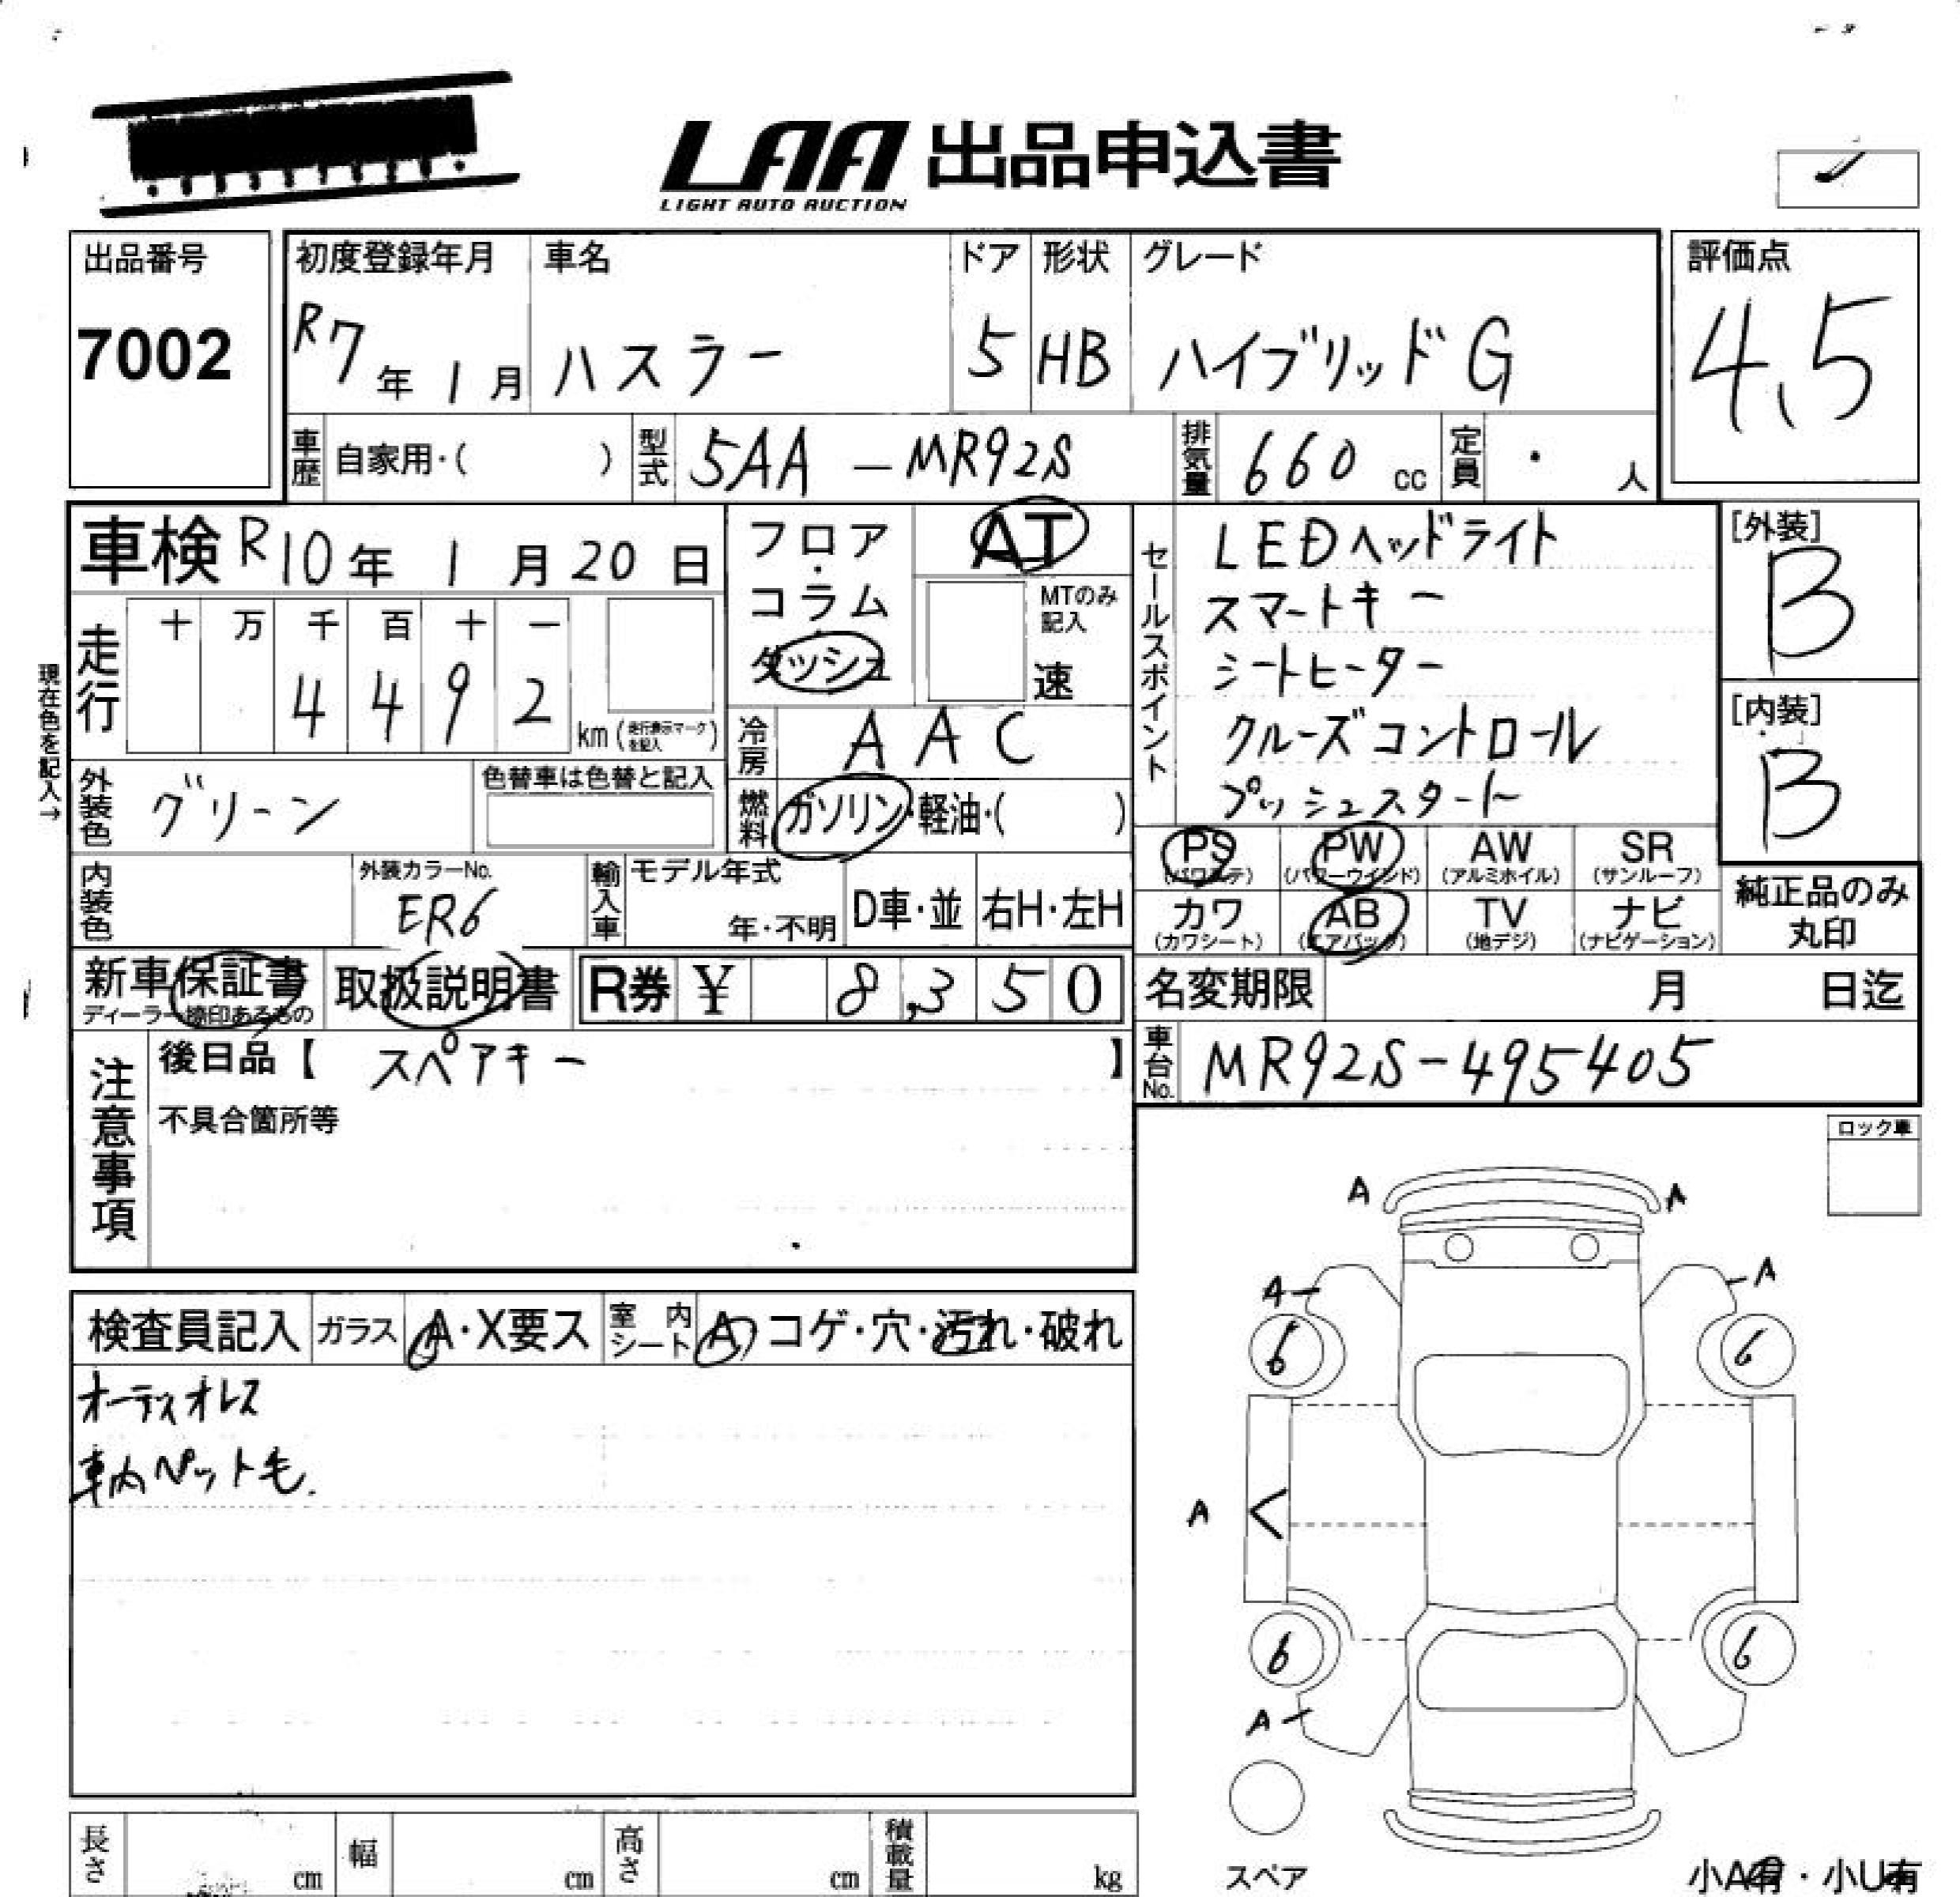 LAA 出品申込書
LIGHT AUTO AUCTION
出品番号
7002
初度登録年月
R7年1月
車名
ハスラー
ドア
5
形状
HB
グレード
ハイブリッドG
評価点
4.5
車歴
自家用・( )
型式
5AA-MR92S
排気量
660cc
定員
・人
車検 R10年1月20日
走行
十 万 千 百 十 一
4 4 9 2
km(走行表示マークを記入)
現在色を記入→
外装色
グリーン
色替車は色替と記入
内装色
外装カラーNo.
ER6
輸入車
モデル年式
年・不明
D車・並
右H・左H
フロア
・
コラム
・
ダッシュ
AT
MTのみ記入
速
冷房
AAC
燃料
ガソリン・軽油・( )
セールスポイント
LEDヘッドライト
スマートキー
シートヒーター
クルーズコントロール
プッシュスタート
[外装]
B
[内装]
B
PS
(パワステ)
PW
(パワーウインド)
AW
(アルミホイル)
SR
(サンルーフ)
カワ
(カワシート)
AB
(エアバック)
TV
(地デジ)
ナビ
(ナビゲーション)
純正品のみ
丸印
新車保証書
ディーラー捺印あるもの
取扱説明書
R券 ¥ 8,350
名変期限 月 日迄
車台No.
MR92S-495405
注意事項
後日品【 スペアキー 】
不具合箇所等
ロック車
検査員記入
ガラス
A・X要ス
室内シート
A コゲ・穴・汚れ・破れ
オーディオレス
車内ペット毛.
A A
A A
6 6
A
6 6
A
スペア
小A有・小U有
長さ cm
幅 cm
高さ cm
積載量 kg